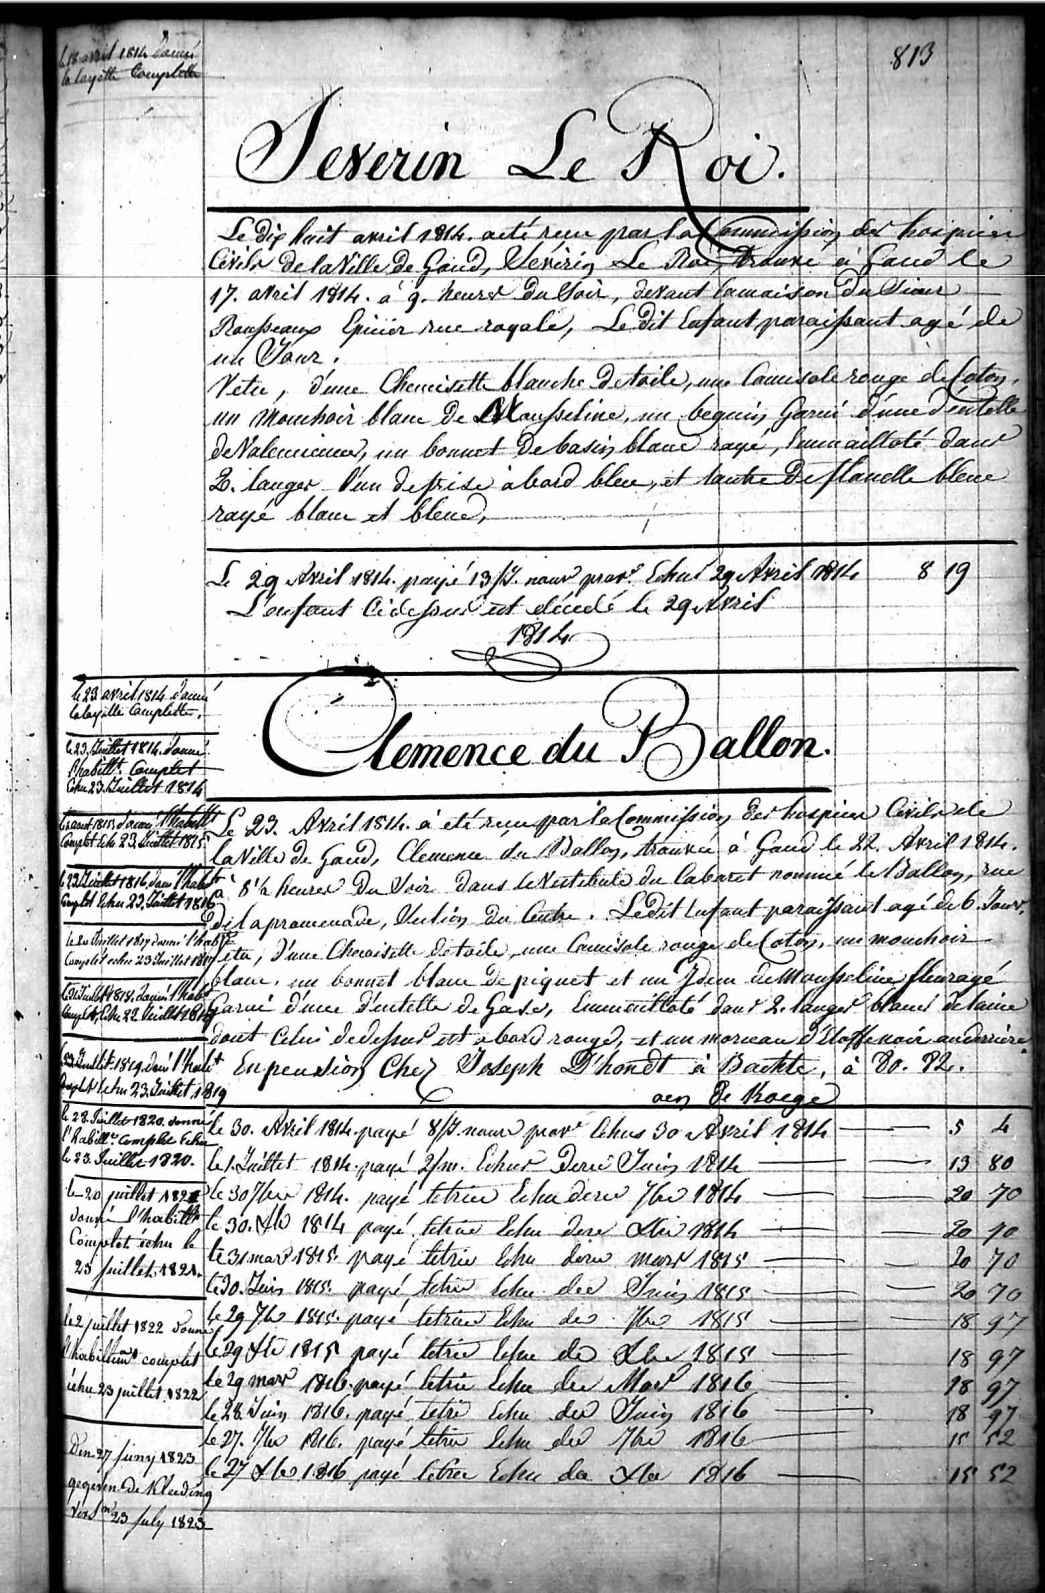 813
le 18 avril 1814 donné
la layette Complette
Severin Le Roi.
Le dix huit avril 1814. a été recu par la Commission des hospices
Civils de la Ville de Gand, Séverin Le Roi, trouvé à Gand le
17. avril 1814. à 9. heures du Soir, devant la maison du Sieur
Rousseaux Epicier rue royale, Le dit Enfant paraissant agé de
un Jour.
Vetu, d'une Chemisette blanche de toile, une Camisole rouge de Coton,
un mouchoir blanc de Mousseline, un beguin, garni d'une dentelle
de Valencienne, un bonnet de basin blanc rayé, Emmailloté dans
2. langes l'un de frise à bord bleu, et l'autre de flanelle bleue
rayé blanc et bleue,
Le 29 Avril 1814. payé 13/J. nourr prov.e Echus 29 Avril 1814 8 19
L'enfant Cidessus est décédé le 29 Avril
1814
le 23 avril 1814 donné
la layette Complette.
le 23. Juillet 1814. donné
l'habillt. Complet
Echu 23. Juillet 1814
donné l'habillt
Complet Echu 23. Juillet 1815
le 23 Juillet 1816 donné l'habt
Complet Echu 23. Juillet 1816
le 20 Juillet 1817 donné l'habt
Complet echu 23 Juillet 1817
Juillet 1818. donné l'habt
Complet, Echu 23 Juillet 1818
Juillet 1819. donné l'habt
Complet Echu 23. Juillet 1819
le 28. Juillet 1820. donné
l'habillt. complet Echu
le 23. Juillet 1820.
le 20 juillet 1821
donné l'habillt
Complet échu le
23 juillet 1821.
le 2 juillet 1822 donné
l'habillemt complet
échu 23 juillet 1822
Den 27 juny 1823
gegeven de Kleeding
23 july 1823
Clemence du Ballon.
Le 23. Avril 1814. a été recu par la Commission des hospices Civils de
la Ville de Gand, Clemence du Ballon, trouvée à Gand le 22. Avril 1814.
à 8 1/2 heures du Soir dans le Vestibule du Cabaret nommé le Ballon, rue
de la promenade, Section du Centre. Le dit Enfant paraissant agé de 6. Jours,
Vetu, d'une Chemisette de toile, une Camisole rouge de Coton, un mouchoir
blanc, un bonnet blanc de piquet et un Idem de Mousseline fleuragé
Garni d'une dentelle de Gaze, Emmailloté dans 2. langes blancs de laine
dont Celui de dessus est a bord rouge, et un morceau d'Etoffe noir au derrière
En pension Chez Joseph D'hondt à Bachte, à 80. 82.
aen de Kaege
le 30. Avril 1814. payé 8/J. nourr prov.e Echus 30 Avril 1814 5 4
le 1. Juillet 1814. payé 2/m. Echus Dere Juin 1814 13 80
le 30 7bre 1814. payé letrim Echu dere 7bre 1814 20 70
le 30. Xbre 1814 payé letrim Echu dere Xbre 1814 20 70
le 31 mars 1815. payé letrim Echu dere mars 1815 20 70
le 30. Juin 1815. payé letrim Echu der Juin 1815 20 70
le 29 7bre 1815. payé letrim Echu der 7bre 1815 18 97
le 29 Xbre 1815 payé letrim Echu de Xbre 1815 18 97
le 29 mars 1816. payé letrim Echu der Mars 1816 18 97
le 28. Juin 1816. payé letri Echu der Juin 1816 18 97
le 27. 7bre 1816. payé letrim Echu der 7bre 1816 15 52
le 27 Xbre 1816 payé letrim Echu de Xbre 1816 15 52